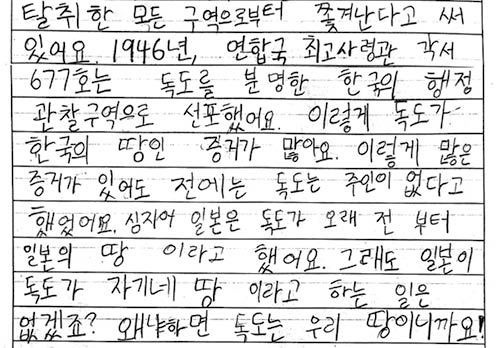 탈취한 모든 구역으로부터 쫓겨난다고 써
있어요. 1946년, 연합국 최고사령관 각서
677호는 독도를 분명한 한국의 행정
관찰구역으로 선포했어요. 이렇게 독도가
한국의 땅인 증거가 많아요. 이렇게 많은
증거가 있어도 전에는 독도는 주인이 없다고
했었어요. 심지어 일본은 독도가 오래 전 부터
일본의 땅 이라고 했어요. 그래도 일본이
독도가 자기네 땅 이라고 하는 일은
없겠죠? 왜냐하면 독도는 우리 땅이니까요!